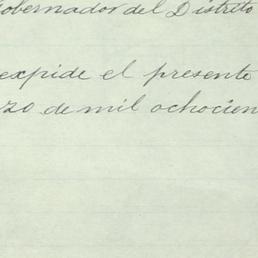 obernador del Distrito
expide el presente
zo de mil ochocien